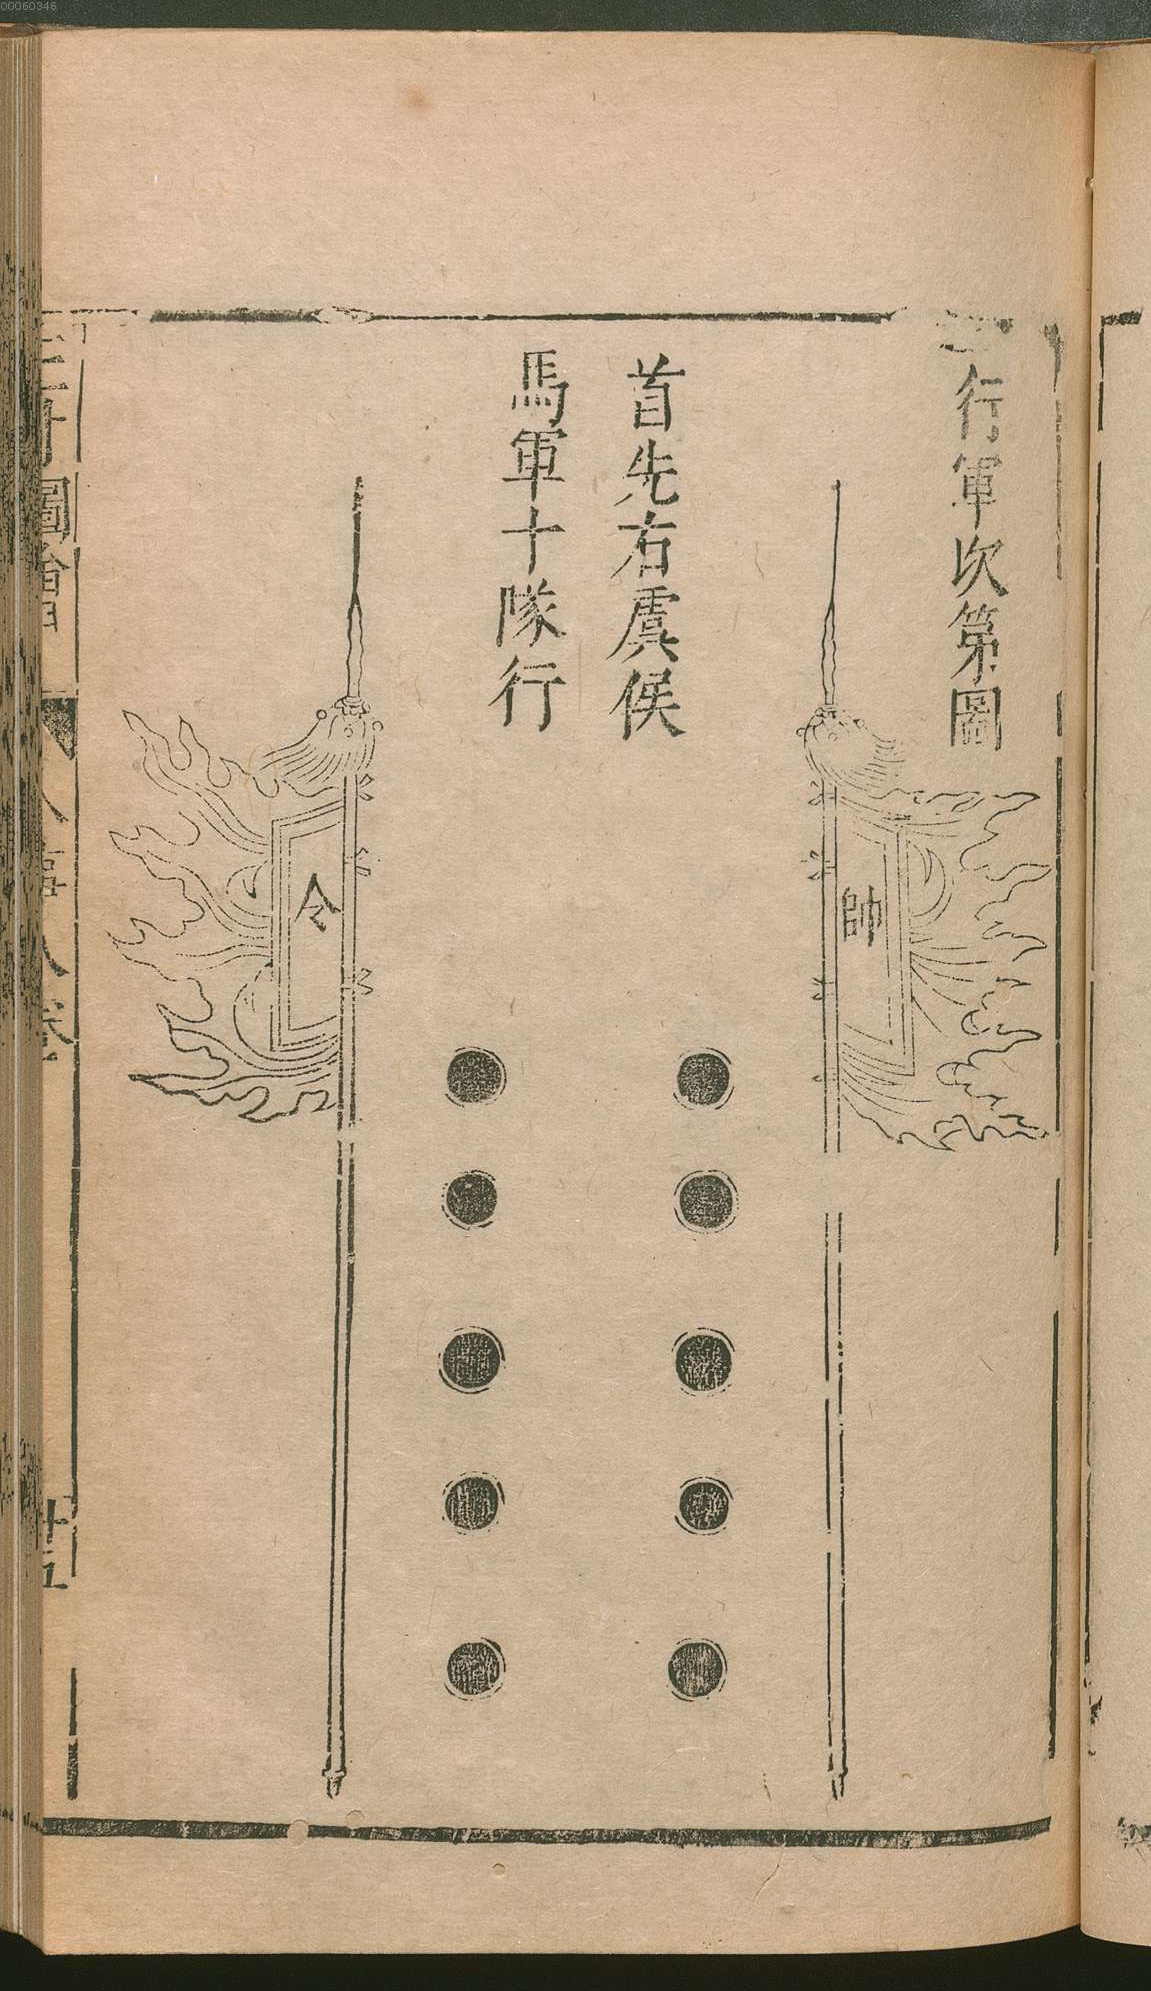 00060346
行軍次第圖
帥
首先右虞候
馬軍十隊行
令
三才圖會
人事八卷
廿五